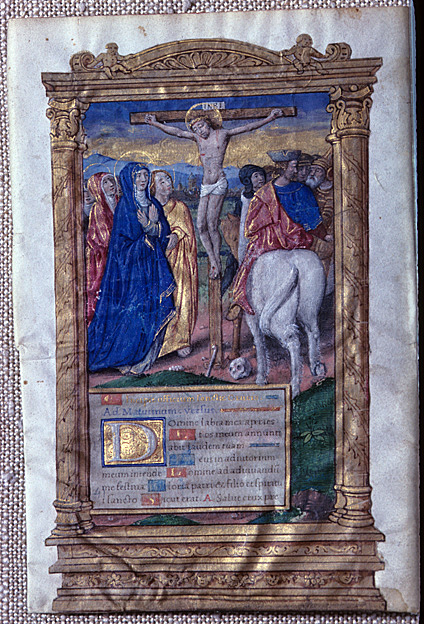 INRI
Ad Matutinum versus
Domine labia mea aperies
Et os meum annunti
abit laudem tuam
Deus in adiutorium
meum intende Domine ad adiuuandū
me festina Gloria patri et filio et spiritui
sancto Sicut erat. A. Salue crux pre